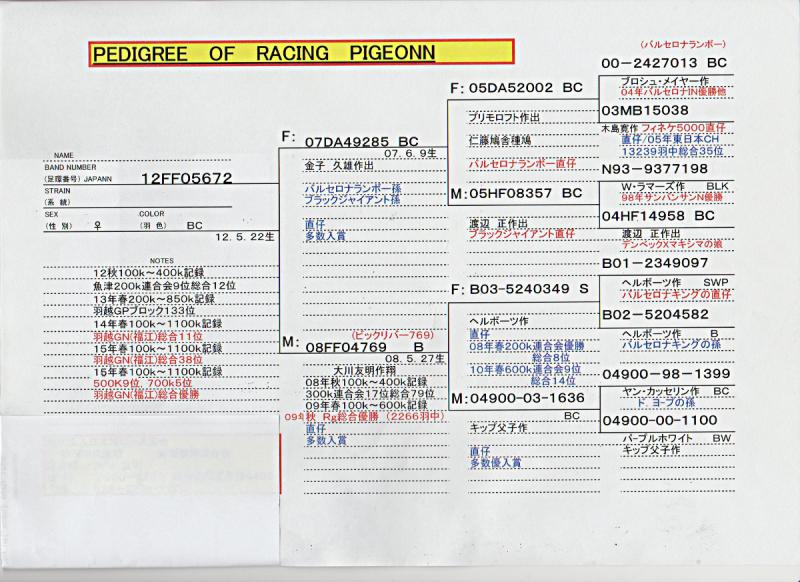 PEDIGREE OF RACING PIGEONN
NAME
BAND NUMBER
(足環番号) JAPANN 12FF05672
STRAIN
(系 統)
SEX COLOR
(性 別) ♀ (羽 色) BC
12. 5. 22生
NOTES
12秋100k～400k記録
魚津200k連合会9位総合12位
13年春200k～850k記録
羽越GPブロック133位
14年春100k～1100k記録
羽越GN(福江)総合11位
15年春100k～1100k記録
羽越GN(福江)総合38位
15年春100k～1100k記録
500K9位, 700k5位
羽越GN(福江)総合優勝
F: 07DA49285 BC
07. 6. 9生
金子 久雄作出
バルセロナランボー孫
ブラックジャイアント孫
直仔
多数入賞
(ビックリバー769)
M: 08FF04769 B
08. 5. 27生
大川友明作翔
08年秋100k～400k記録
300k連合会17位総合79位
09年春100k～600k記録
09年秋 Rg総合優勝 (2266羽中)
直仔
多数入賞
F: 05DA52002 BC
プリモロフト作出
仁藤鳩舎種鳩
バルセロナランボー直仔
M: 05HF08357 BC
渡辺 正作出
ブラックジャイアント直仔
F: B03-5240349 S
ヘルボーツ作
直仔
08年春200k連合会優勝
総合8位
10年春600k連合会9位
総合14位
M: 04900-03-1636
BC
キップ父子作
直仔
多数優入賞
(バルセロナランボー)
00-2427013 BC
ブロシュ・メイヤー作
04年バルセロナIN優勝他
03MB15038
木島寛作 フィネケ5000直仔
直仔/05年東日本CH
13239羽中総合35位
N93-9377198
W・ラマーズ作 BLK
98年サンバンサンN優勝
04HF14958 BC
渡辺 正作出
デンベックXマキシマの娘
B01-2349097
ヘルボーツ作 SWP
バルセロナキングの直仔
B02-5204582
ヘルボーツ作 B
バルセロナキングの孫
04900-98-1399
ヤン・カッセリン作 BC
ド ヨーブの孫
04900-00-1100
パープルホワイト BW
キップ父子作